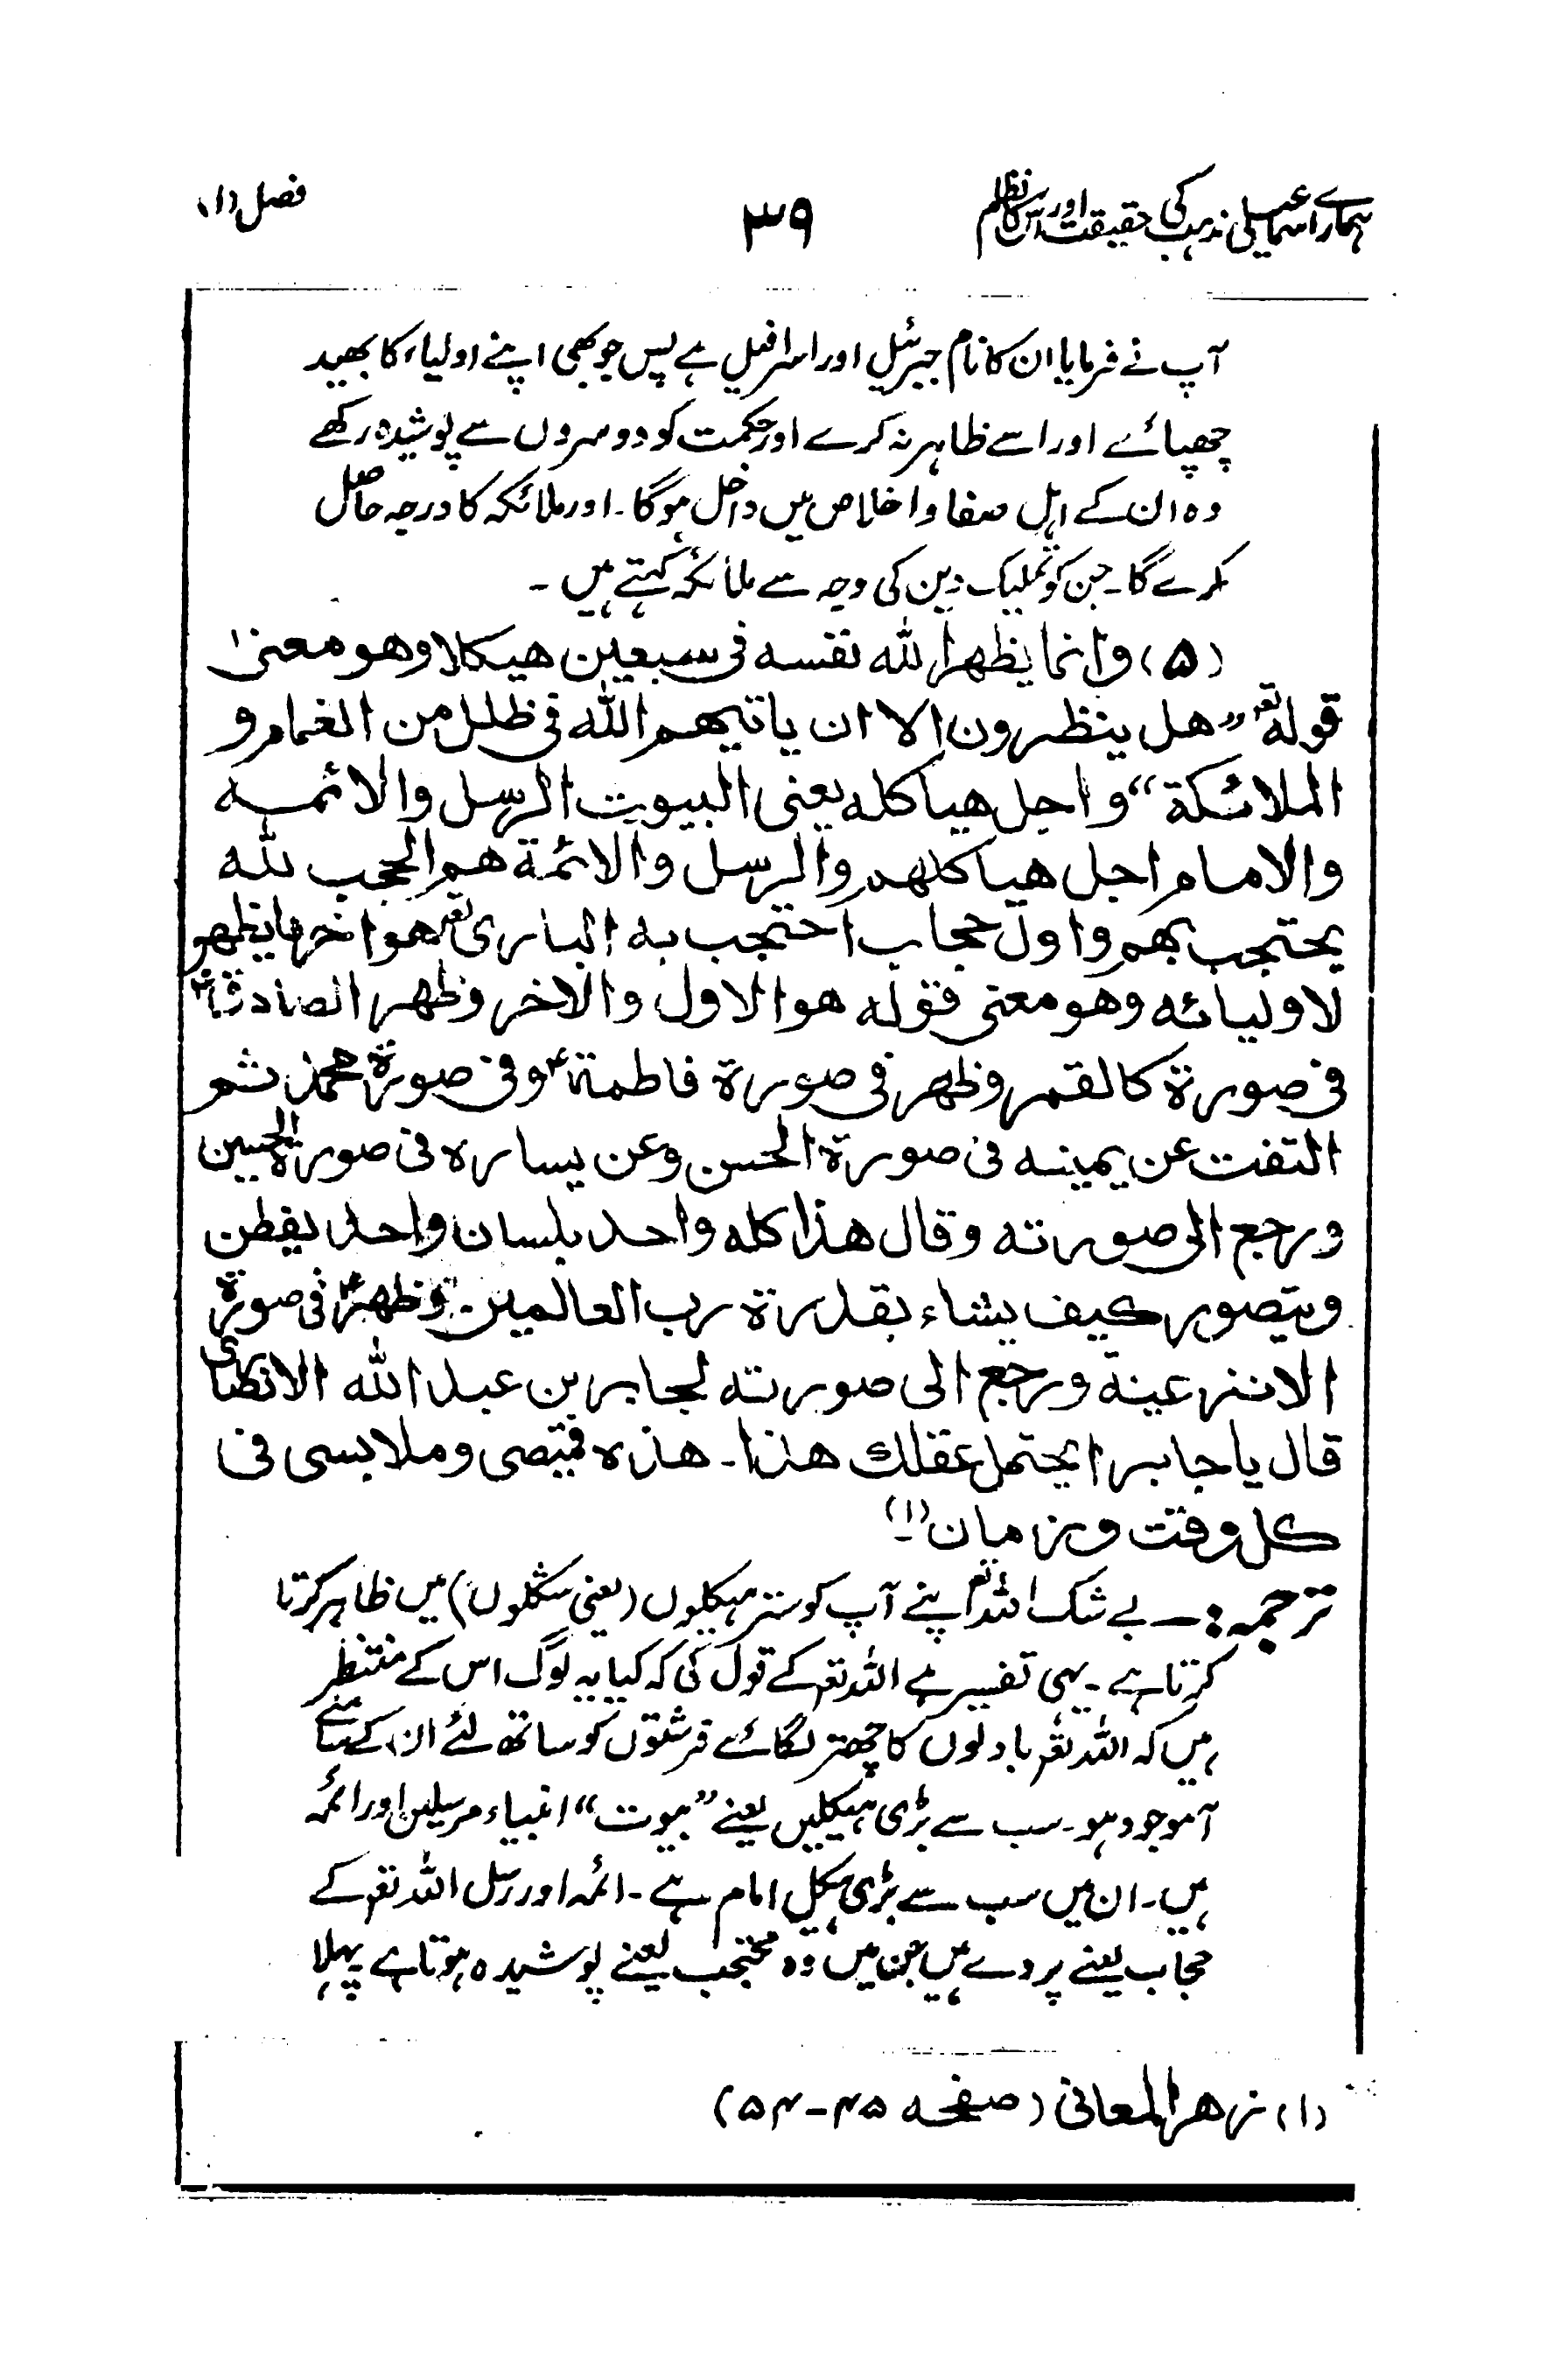 ہمارے اسماعیلی مذہب کی حقیقت اور اس کا نظام
۳۹
فصل (۱)
آپ نے فرمایا ان کا نام جبرئیل اور اسرافیل ہے پس جو بھی اپنے اولیاء کا بھید
چھپائے اور اسے ظاہر نہ کرے اور حکمت کو دوسروں سے پوشیدہ رکھے
وہ ان کے اہل صفا و اخلاص میں داخل ہوگا۔ اور ملائکہ کا درجہ حاصل
کرے گا۔ جن کو تملیک دین کی وجہ سے ملائکہ کہتے ہیں۔
(۵) وانما یظھر اللہ نفسہ فی سبعین ھیکلا وھو معنیٰ
قولہ تعہ ”ھل ینظرون الا ان یاتیھم اللہ فی ظلل من الغمام و
الملائکة“ واجل ھیاکلہ یعنی البیوت الرسل والائمہ
والامام اجل ھیاکلھم والرسل والائمة ھم الحجب للہ
یحتجب بھم واول حجاب احتجب بہ الباری تعہ ھو اخر ما یظھر
لاولیائہ وھو معنی فقولہ ھو الاول والاخر وظھر الصادق ؑ
فی صورة کالقمر وظھر فی صورة فاطمة ؑ وفی صورة محمد ثم
التفت عن یمینہ فی صورة الحسن وعن یسارہ فی صورة الحسین
ورجع الی صورتہ وقال ھذا کلہ واحد بلسان واحد یفطن
ویتصور کیف یشاء بقدرة رب العالمین۔ وظھر ؑ فی صورة
الانزعیة ورجع الی صورتہ لجابر بن عبد اللہ الانصاری
قال یا جابر ایحتمل عقلك ھذا۔ ھذہ قمیصی وملابسی فی
کل وقت وزمان (۱)
ترجمہ:۔ بے شک اللہ تعہ اپنے آپ کو ستر ہیکلوں (یعنی شکلوں) میں ظاہر کرتا
کرتا ہے۔ یہی تفسیر ہے اللہ تعہ کے قول کی کہ کیا یہ لوگ اس کے منتظر
ہیں کہ اللہ تعہ بادلوں کا چھتر لگائے فرشتوں کو ساتھ لئے ان کے سامنے
آموجود ہو۔ سب سے بڑی ہیکلیں یعنے ”بیوت“ انبیاء مرسلین اور ائمہ
ہیں۔ ان میں سب سے بڑی ہیکل امام ہے۔ ائمہ اور رسل اللہ تعہ کے
حجاب یعنے پردے ہیں جن میں وہ محتجب یعنے پوشیدہ ہوتا ہے پہلا
(۱) زھر المعانی (صفحہ ۴۵-۵۴)